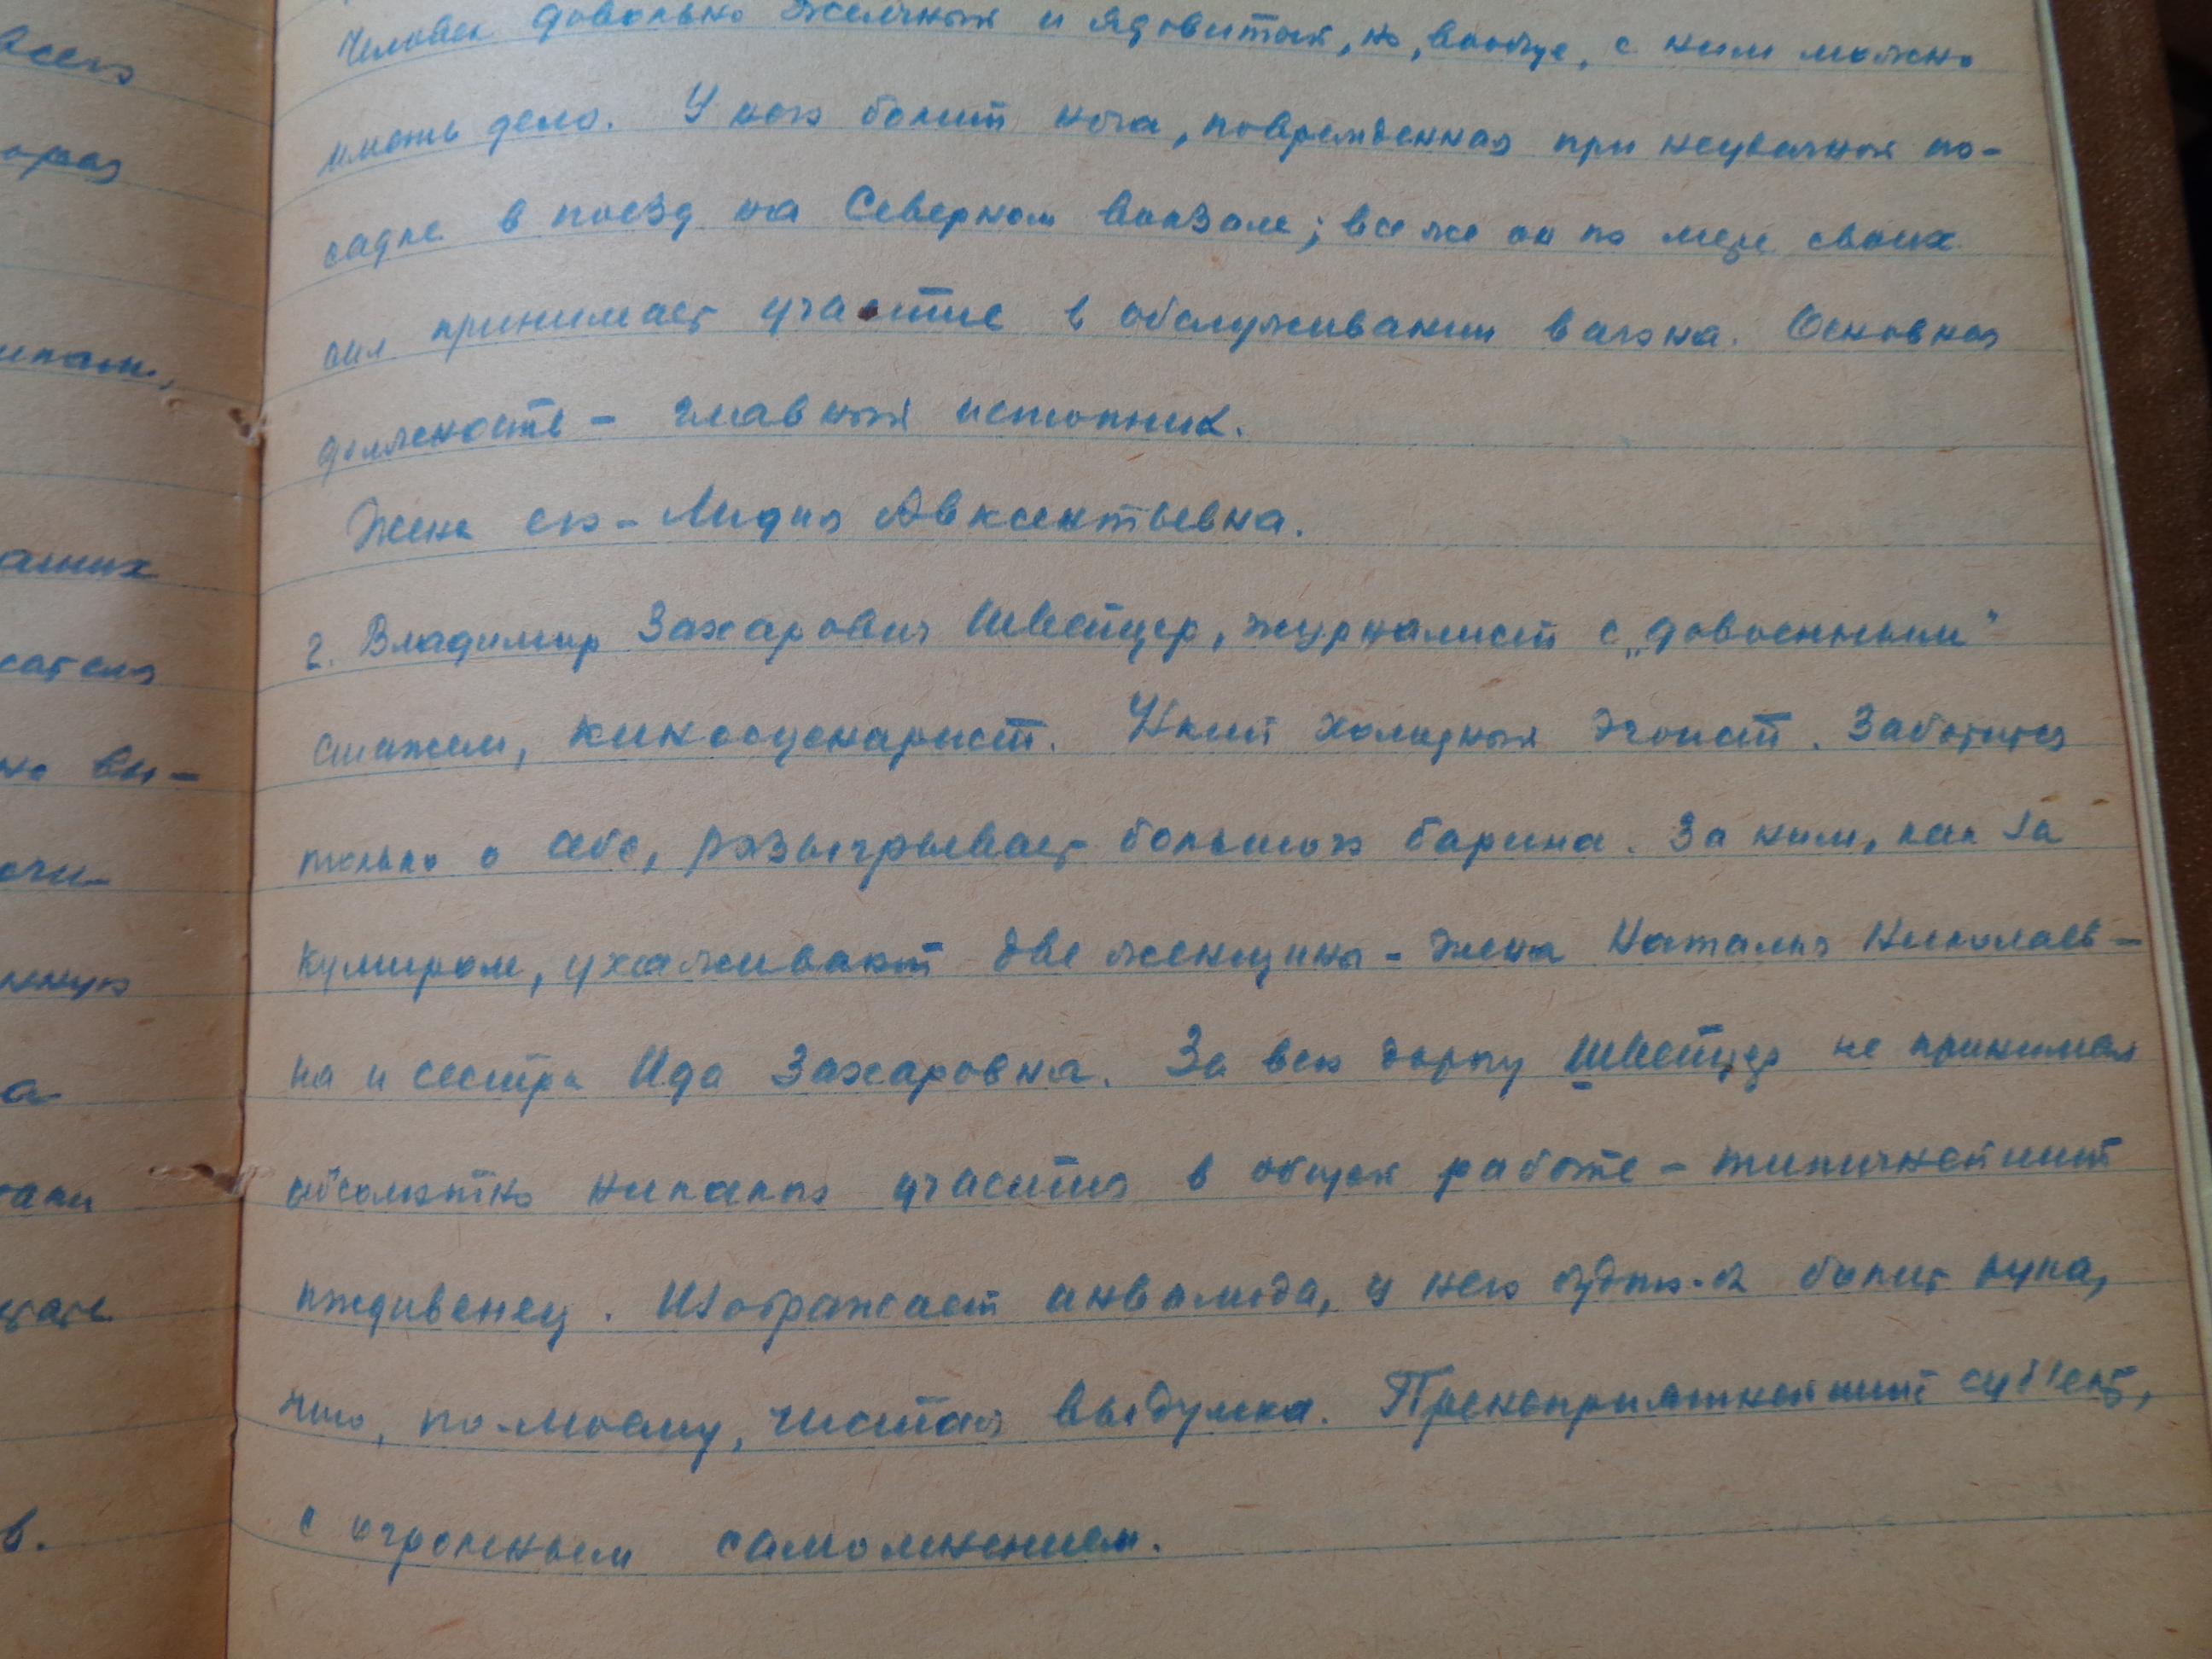 всего
орая
ипам,
ащих
сателя
но вы-
очи-
нную
а
тами
тать
в.
Человек довольно желчный и ядовитый, но, вообще, с ним можно
иметь дело. У него болит нога, поврежденная при неудачной по-
садке в поезд на Северном вокзале; все же он по мере своих
сил принимает участие в обслуживании вагона. Основная
должность – главный истопник.
Жена его – Лидия Авксентьевна.
2. Владимир Захарович Швейцер, журналист с „довоенным"
стажем, киносценарист. Некий холодный эгоист. Заботится
только о себе, разыгрывает большого барина. За ним, как за
кумиром, ухаживают две женщины – жена Наталья Николаев-
на и сестра Ида Захаровна. За всю дорогу Швейцер не принимал
абсолютно никакого участия в общей работе – типичнейший
иждивенец. Изображает инвалида, у него будто-бы болит рука,
что, по-моему, чистая выдумка. Пренеприятнейший суб'ект,
с огромным самомнением.